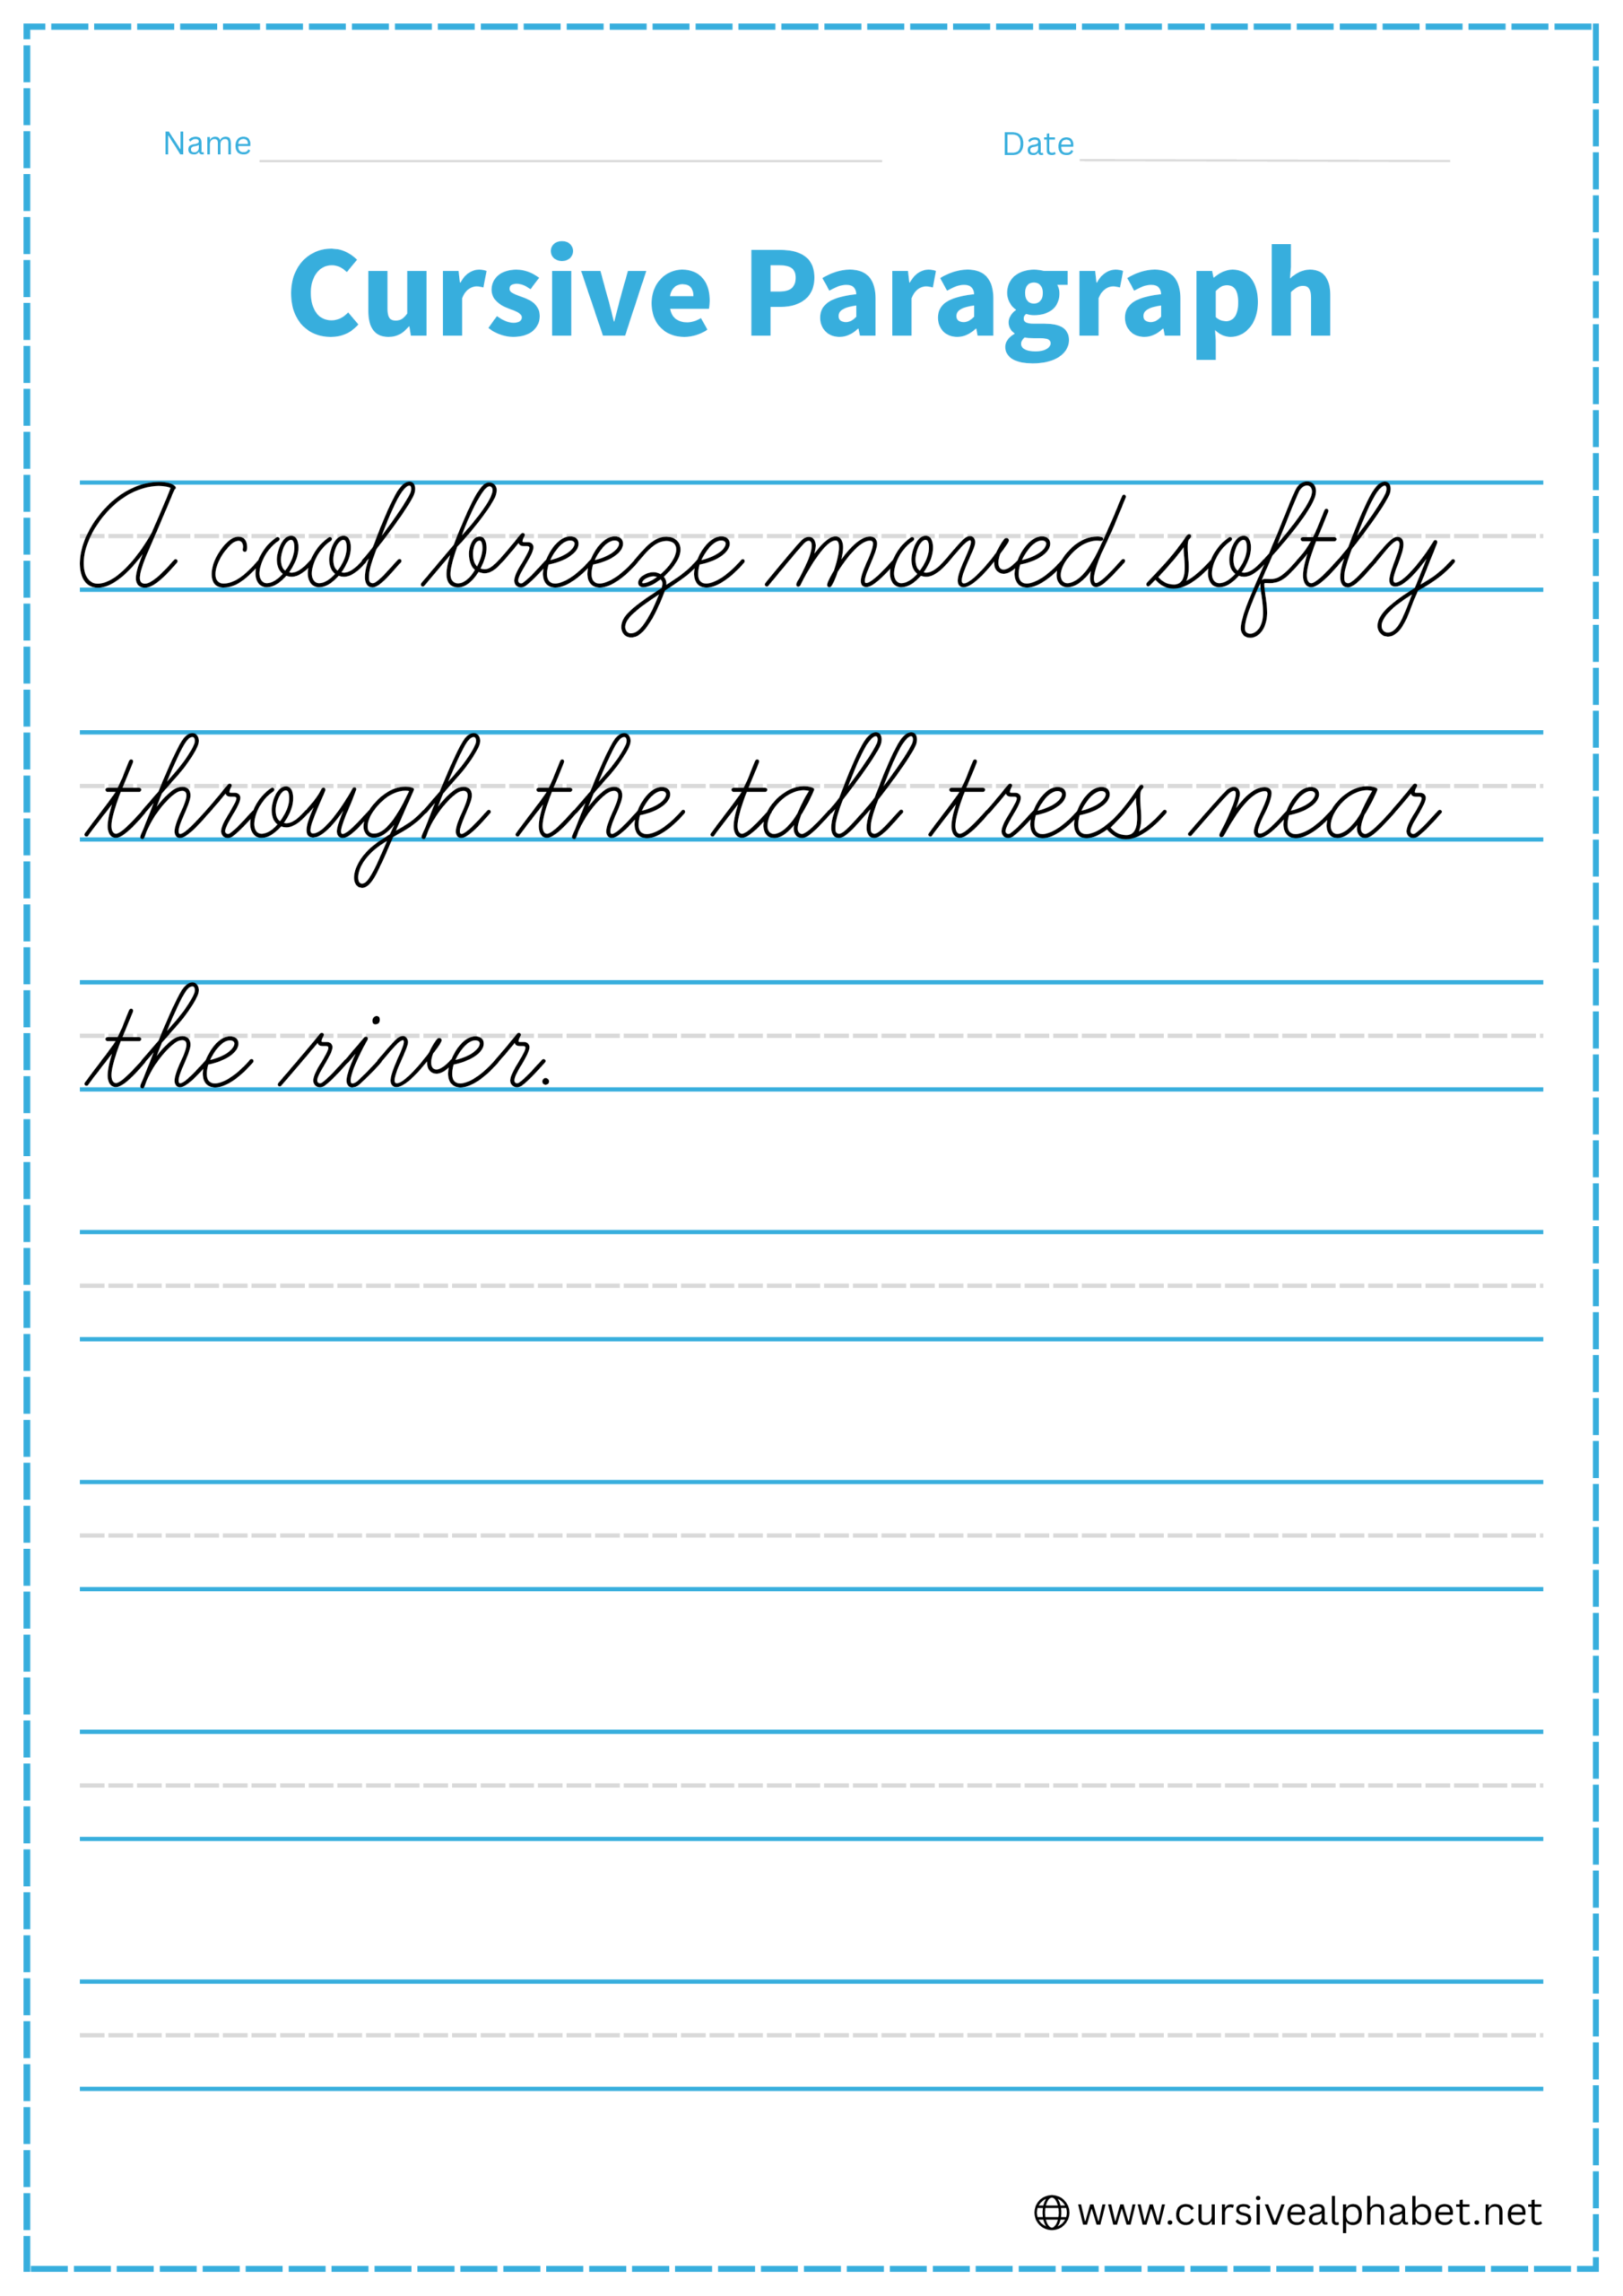 Name Date
Cursive Paragraph
A cool breeze moved softly
through the tall trees near
the river.
www.cursivealphabet.net